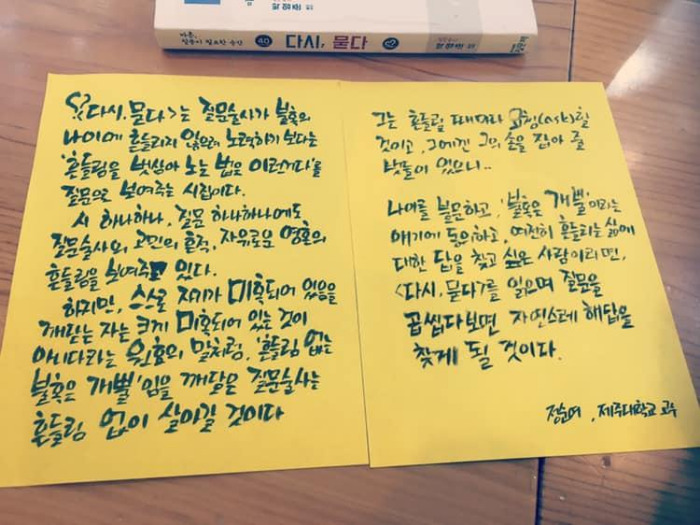 다시, 묻다
40
<다시, 묻다>는 질문술사가 불혹의
나이에 흔들리지 않으려 노력하기 보다는
'흔들림을 벗삼아 노는 법은 이런거다'를
질문으로 보여주는 시집이다.
시 하나하나, 질문 하나하나에도
질문술사의 고민의 흔적, 자유로운 영혼의
흔들림을 보여주고 있다.
하지만, 스스로 자기가 미혹되어 있음을
깨닫는 자는 크게 미혹되어 있는 것이
아니다라는 원효의 말처럼, '흔들림 없는
불혹은 개뻘'임을 깨달은 질문술사는
흔들림 없이 살아갈 것이다
그는 흔들릴 때마다 (ask)할
것이고, 그에겐 그의 손을 잡아 줄
벗들이 있으니..
나이를 불문하고, '불혹은 개뻘'이라는
얘기에 동의하고, 여전히 흔들리는 삶에
대한 답을 찾고 싶은 사람이라면,
<다시, 묻다>를 읽으며 질문을
곱씹다보면 자연스레 해답을
찾게 될 것이다.
제주대학교 교수